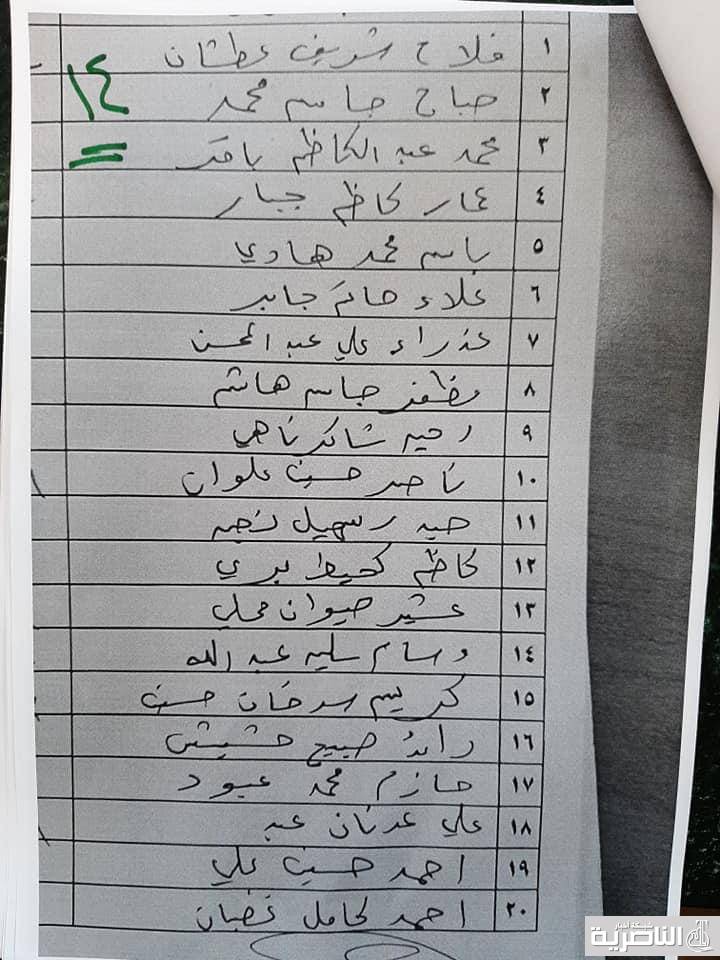 ١ فلاح شريف عطشان
١٤
٢ صباح جاسم محمد
٣ محمد عبد الكاظم باقر
٤ عمار كاظم جبار
٥ باسم محمد هادي
٦ علاء حاتم جابر
٧ عذراء علي عبد المحسن
٨ مظفر جاسم هاشم
٩ رحيم شاكر ناهي
١٠ ناصر حسين علوان
١١
١٢ كاظم بري
١٣ عشير محلي
١٤ وسام سليم عبد الله
١٥ كريم سرحان حسين
١٦ رائد صبيح حشيش
١٧ حازم محمد عبود
١٨ علي عدنان عبد
١٩ احمد حسين علي
٢٠ احمد كامل غضبان
شبكة اخبار
الناصرية